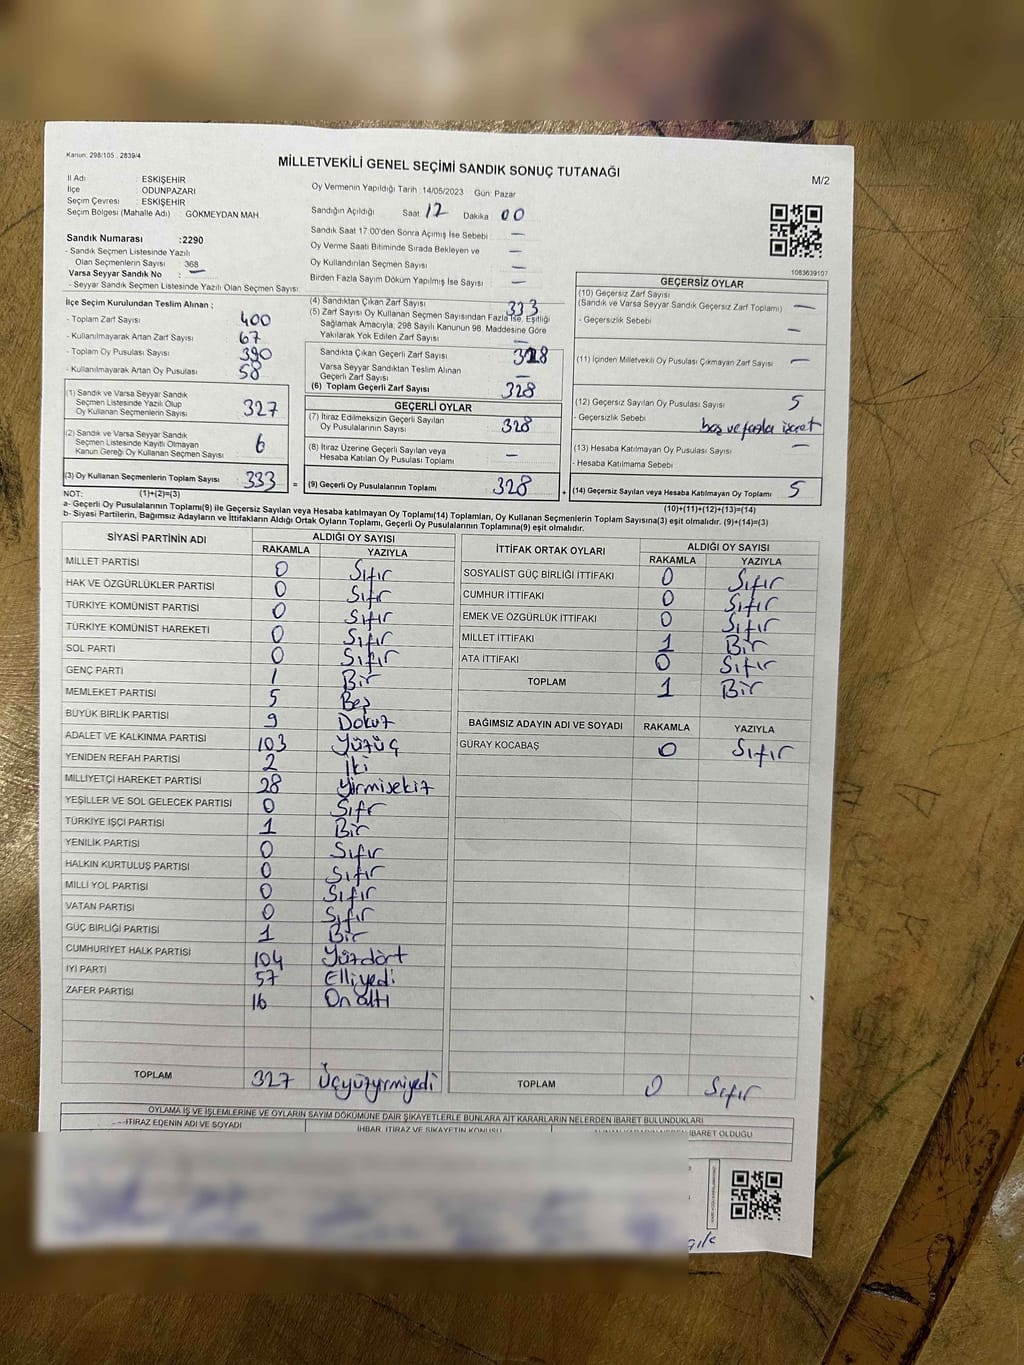 Kanun: 298/105 , 2839/4
MİLLETVEKİLİ GENEL SEÇİMİ SANDIK SONUÇ TUTANAĞI
M/2
İl Adı : ESKİŞEHİR
İlçe : ODUNPAZARI
Seçim Çevresi : ESKİŞEHİR
Seçim Bölgesi (Mahalle Adı) GÖKMEYDAN MAH.
Sandık Numarası :2290
- Sandık Seçmen Listesinde Yazılı
Olan Seçmenlerin Sayısı 368
Varsa Seyyar Sandık No : —
- Seyyar Sandık Seçmen Listesinde Yazılı Olan Seçmen Sayısı:
Oy Vermenin Yapıldığı Tarih :14/05/2023 Gün: Pazar
Sandığın Açıldığı Saat 17 Dakika 00
Sandık Saat 17:00'den Sonra Açılmış İse Sebebi : —
Oy Verme Saati Bitiminde Sırada Bekleyen ve —
Oy Kullandırılan Seçmen Sayısı —
Birden Fazla Sayım Döküm Yapılmış İse Sayısı : —
1083639107
İlçe Seçim Kurulundan Teslim Alınan ;
- Toplam Zarf Sayısı 400
- Kullanılmayarak Artan Zarf Sayısı 67
- Toplam Oy Pusulası Sayısı 390
- Kullanılmayarak Artan Oy Pusulası 58
(1) Sandık ve Varsa Seyyar Sandık
Seçmen Listesinde Yazılı Olup
Oy Kullanan Seçmenlerin Sayısı 327
(2) Sandık ve Varsa Seyyar Sandık
Seçmen Listesinde Kayıtlı Olmayan
Kanun Gereği Oy Kullanan Seçmen Sayısı 6
(3) Oy Kullanan Seçmenlerin Toplam Sayısı 333 =
(4) Sandıktan Çıkan Zarf Sayısı 333
(5) Zarf Sayısı Oy Kullanan Seçmen Sayısından Fazla İse, Eşitliği
Sağlamak Amacıyla, 298 Sayılı Kanunun 98. Maddesine Göre
Yakılarak Yok Edilen Zarf Sayısı —
Sandıkta Çıkan Geçerli Zarf Sayısı 328
Varsa Seyyar Sandıktan Teslim Alınan
Geçerli Zarf Sayısı —
(6) Toplam Geçerli Zarf Sayısı 328
GEÇERLİ OYLAR
(7) İtiraz Edilmeksizin Geçerli Sayılan
Oy Pusulalarının Sayısı 328
(8) İtiraz Üzerine Geçerli Sayılan veya
Hesaba Katılan Oy Pusulası Toplamı —
(9) Geçerli Oy Pusulalarının Toplamı 328 +
GEÇERSİZ OYLAR
(10) Geçersiz Zarf Sayısı
(Sandık ve Varsa Seyyar Sandık Geçersiz Zarf Toplamı) —
- Geçersizlik Sebebi —
(11) İçinden Milletvekili Oy Pusulası Çıkmayan Zarf Sayısı —
(12) Geçersiz Sayılan Oy Pusulası Sayısı 5
- Geçersizlik Sebebi boş ve fazla işaret
(13) Hesaba Katılmayan Oy Pusulası Sayısı —
- Hesaba Katılmama Sebebi
(14) Geçersiz Sayılan veya Hesaba Katılmayan Oy Toplamı 5
NOT: (1)+(2)=(3) (10)+(11)+(12)+(13)=(14)
a- Geçerli Oy Pusulaları Toplamı(9) ile Geçersiz Sayılan veya Hesaba Katılmayan Oy Toplamı(14) Toplamları, Oy Kullanan Seçmenlerin Toplam Sayısına(3) eşit olmalıdır. (9)+(14)=(3)
b- Siyasi Partilerin, Bağımsız Adayların ve İttifakların Aldığı Ortak Oyların Toplamı, Geçerli Oy Pusulalarının Toplamına(9) eşit olmalıdır.
SİYASİ PARTİNİN ADI ALDIĞI OY SAYISI
RAKAMLA YAZIYLA
MİLLET PARTİSİ 0 Sıfır
HAK VE ÖZGÜRLÜKLER PARTİSİ 0 Sıfır
TÜRKİYE KOMÜNİST PARTİSİ 0 Sıfır
TÜRKİYE KOMÜNİST HAREKETİ 0 Sıfır
SOL PARTİ 0 Sıfır
GENÇ PARTİ 1 Bir
MEMLEKET PARTİSİ 5 Beş
BÜYÜK BİRLİK PARTİSİ 9 Dokuz
ADALET VE KALKINMA PARTİSİ 103 Yüzüç
YENİDEN REFAH PARTİSİ 2 İki
MİLLİYETÇİ HAREKET PARTİSİ 28 Yirmisekiz
YEŞİLLER VE SOL GELECEK PARTİSİ 0 Sıfr
TÜRKİYE İŞÇİ PARTİSİ 1 Bir
YENİLİK PARTİSİ 0 Sıfır
HALKIN KURTULUŞ PARTİSİ 0 Sıfır
MİLLİ YOL PARTİSİ 0 Sıfır
VATAN PARTİSİ 0 Sıfır
GÜÇ BİRLİĞİ PARTİSİ 1 Bir
CUMHURİYET HALK PARTİSİ 104 Yüzdört
İYİ PARTİ 57 Elliyedi
ZAFER PARTİSİ 16 Onaltı
TOPLAM 327 Üçyüzyirmiyedi
İTTİFAK ORTAK OYLARI ALDIĞI OY SAYISI
RAKAMLA YAZIYLA
SOSYALİST GÜÇ BİRLİĞİ İTTİFAKI 0 Sıfır
CUMHUR İTTİFAKI 0 Sıfır
EMEK VE ÖZGÜRLÜK İTTİFAKI 0 Sıfır
MİLLET İTTİFAKI 1 Bir
ATA İTTİFAKI 0 Sıfır
TOPLAM 1 Bir
BAĞIMSIZ ADAYIN ADI VE SOYADI RAKAMLA YAZIYLA
GÜRAY KOCABAŞ 0 Sıfır
TOPLAM 0 Sıfır
OYLAMA İŞ VE İŞLEMLERİNE VE OYLARIN SAYIM DÖKÜMÜNE DAİR ŞİKAYETLERLE BUNLARA AİT KARARLARIN NELERDEN İBARET BULUNDUKLARI
İTİRAZ EDENİN ADI VE SOYADI İHBAR, İTİRAZ VE ŞİKAYETİN KONUSU İBARET OLDUĞU